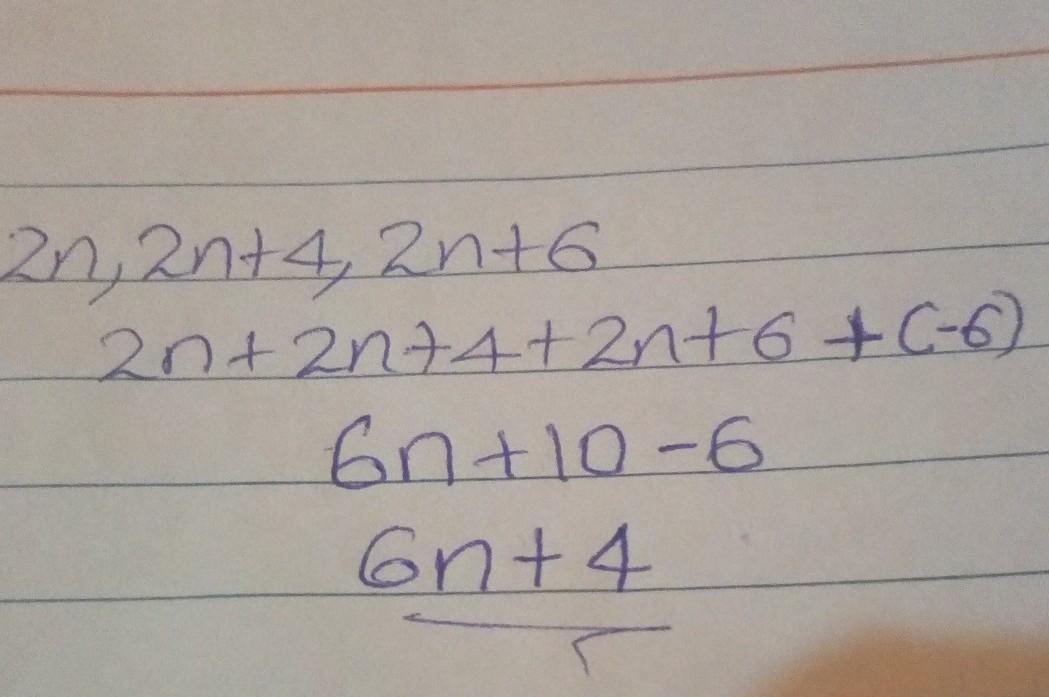 2n, 2n+4, 2n+6
2n+2n+4+2n+6+(-6)
6n+10-6
6n+4